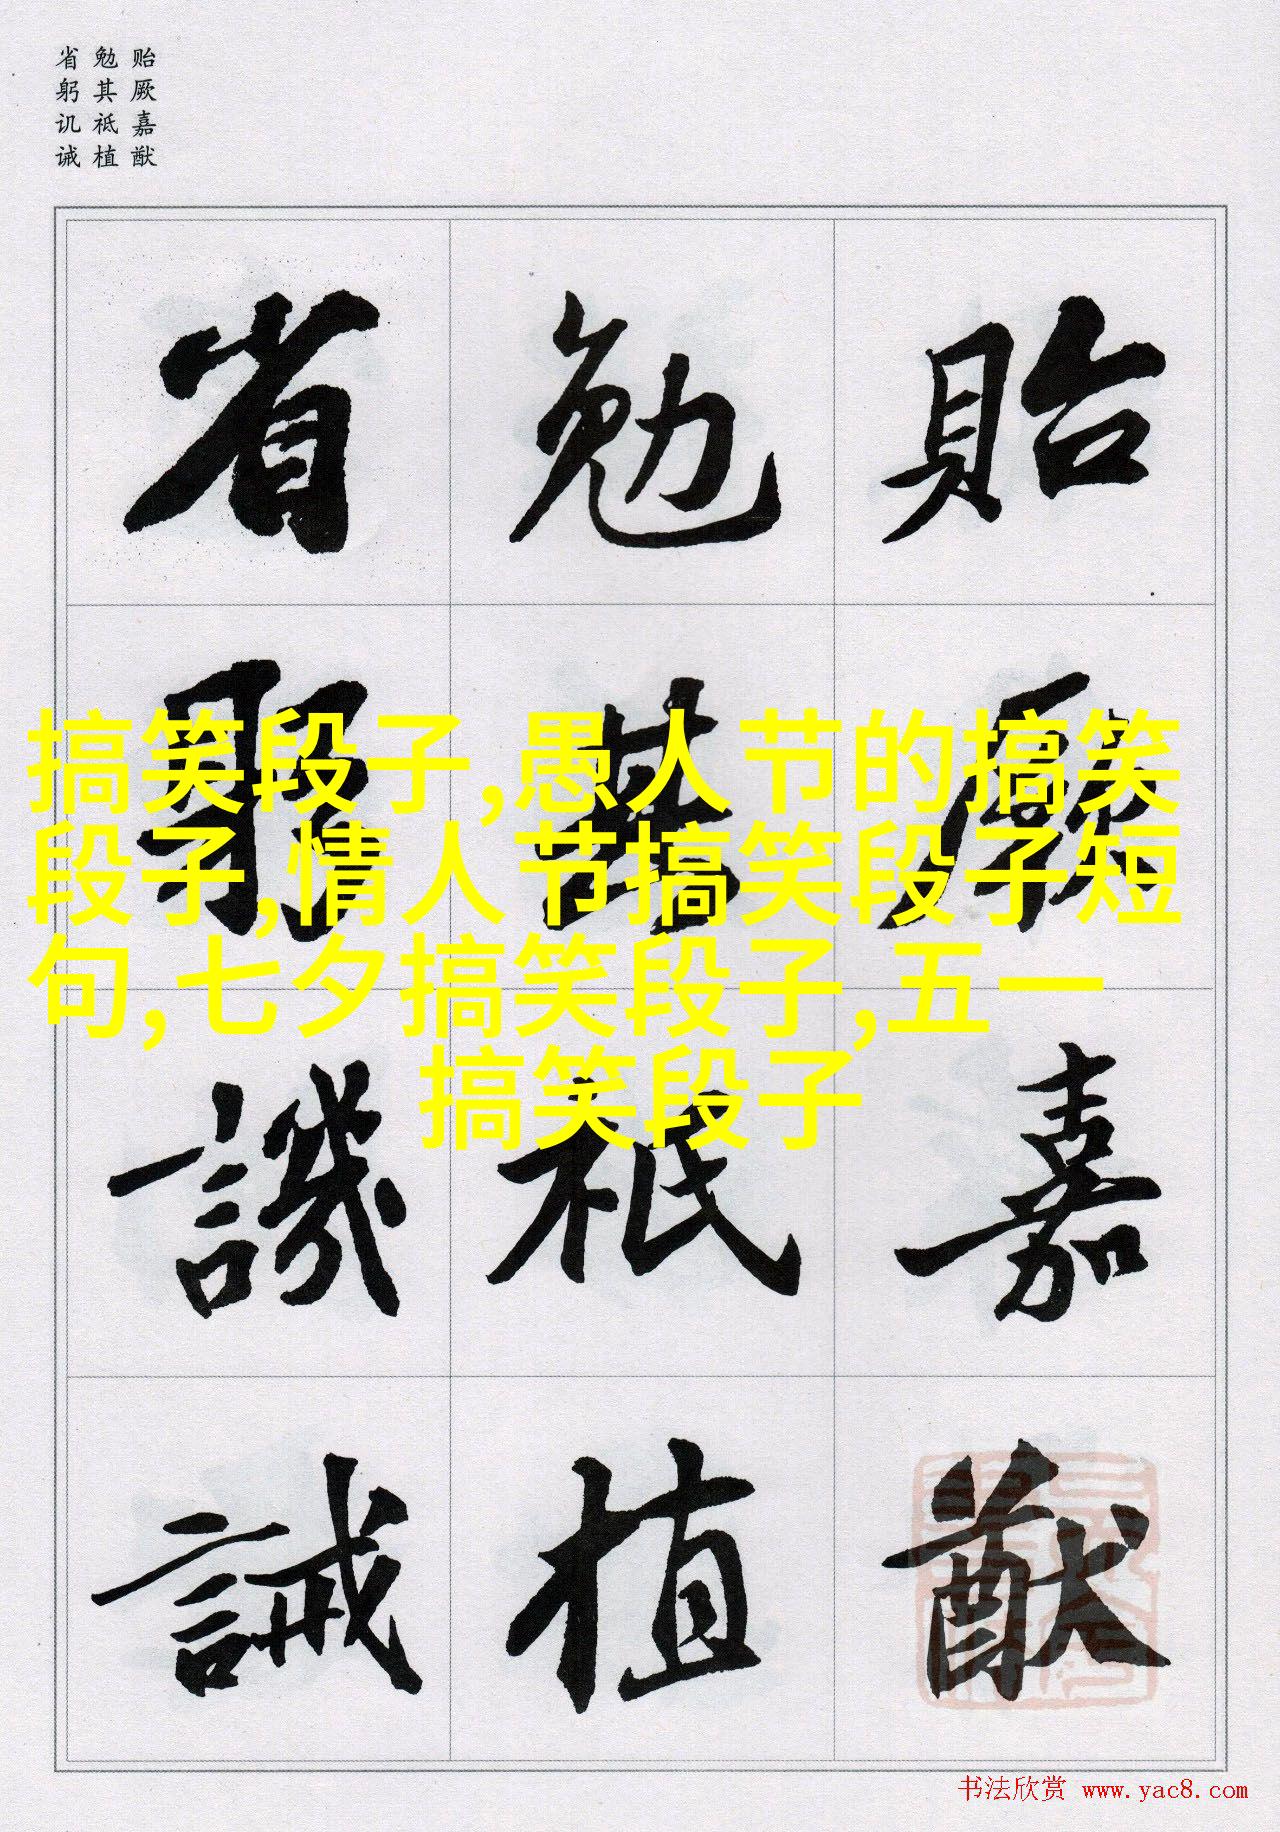 贻厥嘉猷
勉其祗植
省躬讥诫
貽厥嘉猷
勉其祗植
省躬譏誡
搞笑段子,愚人节的搞笑
段子,情人节搞笑段子短
句,七夕搞笑段子,五一
搞笑段子
书法欣赏 www.yac8.com